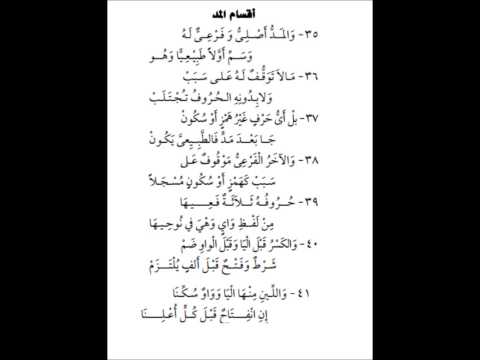 أقسام المد
٣٥- وَالمَدُّ أَصْلِيٌّ وَ فَرْعِيٌّ لَهُ
وَسَمِّ أَوَّلاً طَبِيْعِيًّا وَهُو
٣٦- مَالاَ تَوَقُّفٌ لَهُ عَلى سَبَبْ
وَلابِدُونِهِ الحُرُوفُ تُجْتَلَبْ
٣٧- بلْ أَيُّ حَرْفٍ غَيْرُ هَمْزٍ أَوْ سُكُونْ
جَا بَعْدَ مَدٍّ فَالطَّبِيعِيَّ يَكُونْ
٣٨- وَالآخَرُ الْفَرْعِيُّ مَوْقُوفٌ عَلى
سَبَبْ كَهَمْزٍ أَوْ سُكُونٍ مُسْجَلاً
٣٩- حُرُوفُهُ ثَلاَثَةٌ فَعِيهَا
مِنْ لَفْظِ وَايٍ وَهْيَ في نُوحِيهَا
٤٠- وَالكَسْرُ قَبْلَ الْيَا وَقَبْلَ الْواوِ ضَمْ
شَرْطٌ وَفَتْحٌ قَبْلَ أَلفٍ يُلْتَزَمْ
٤١- وَاللِّينُ مِنْهَا الْيَا وَوَاوٌ سُكِّنَا
إِنِ انْفِتَاحٌ قَبْلَ كُلٍّ أُعْلِنَا